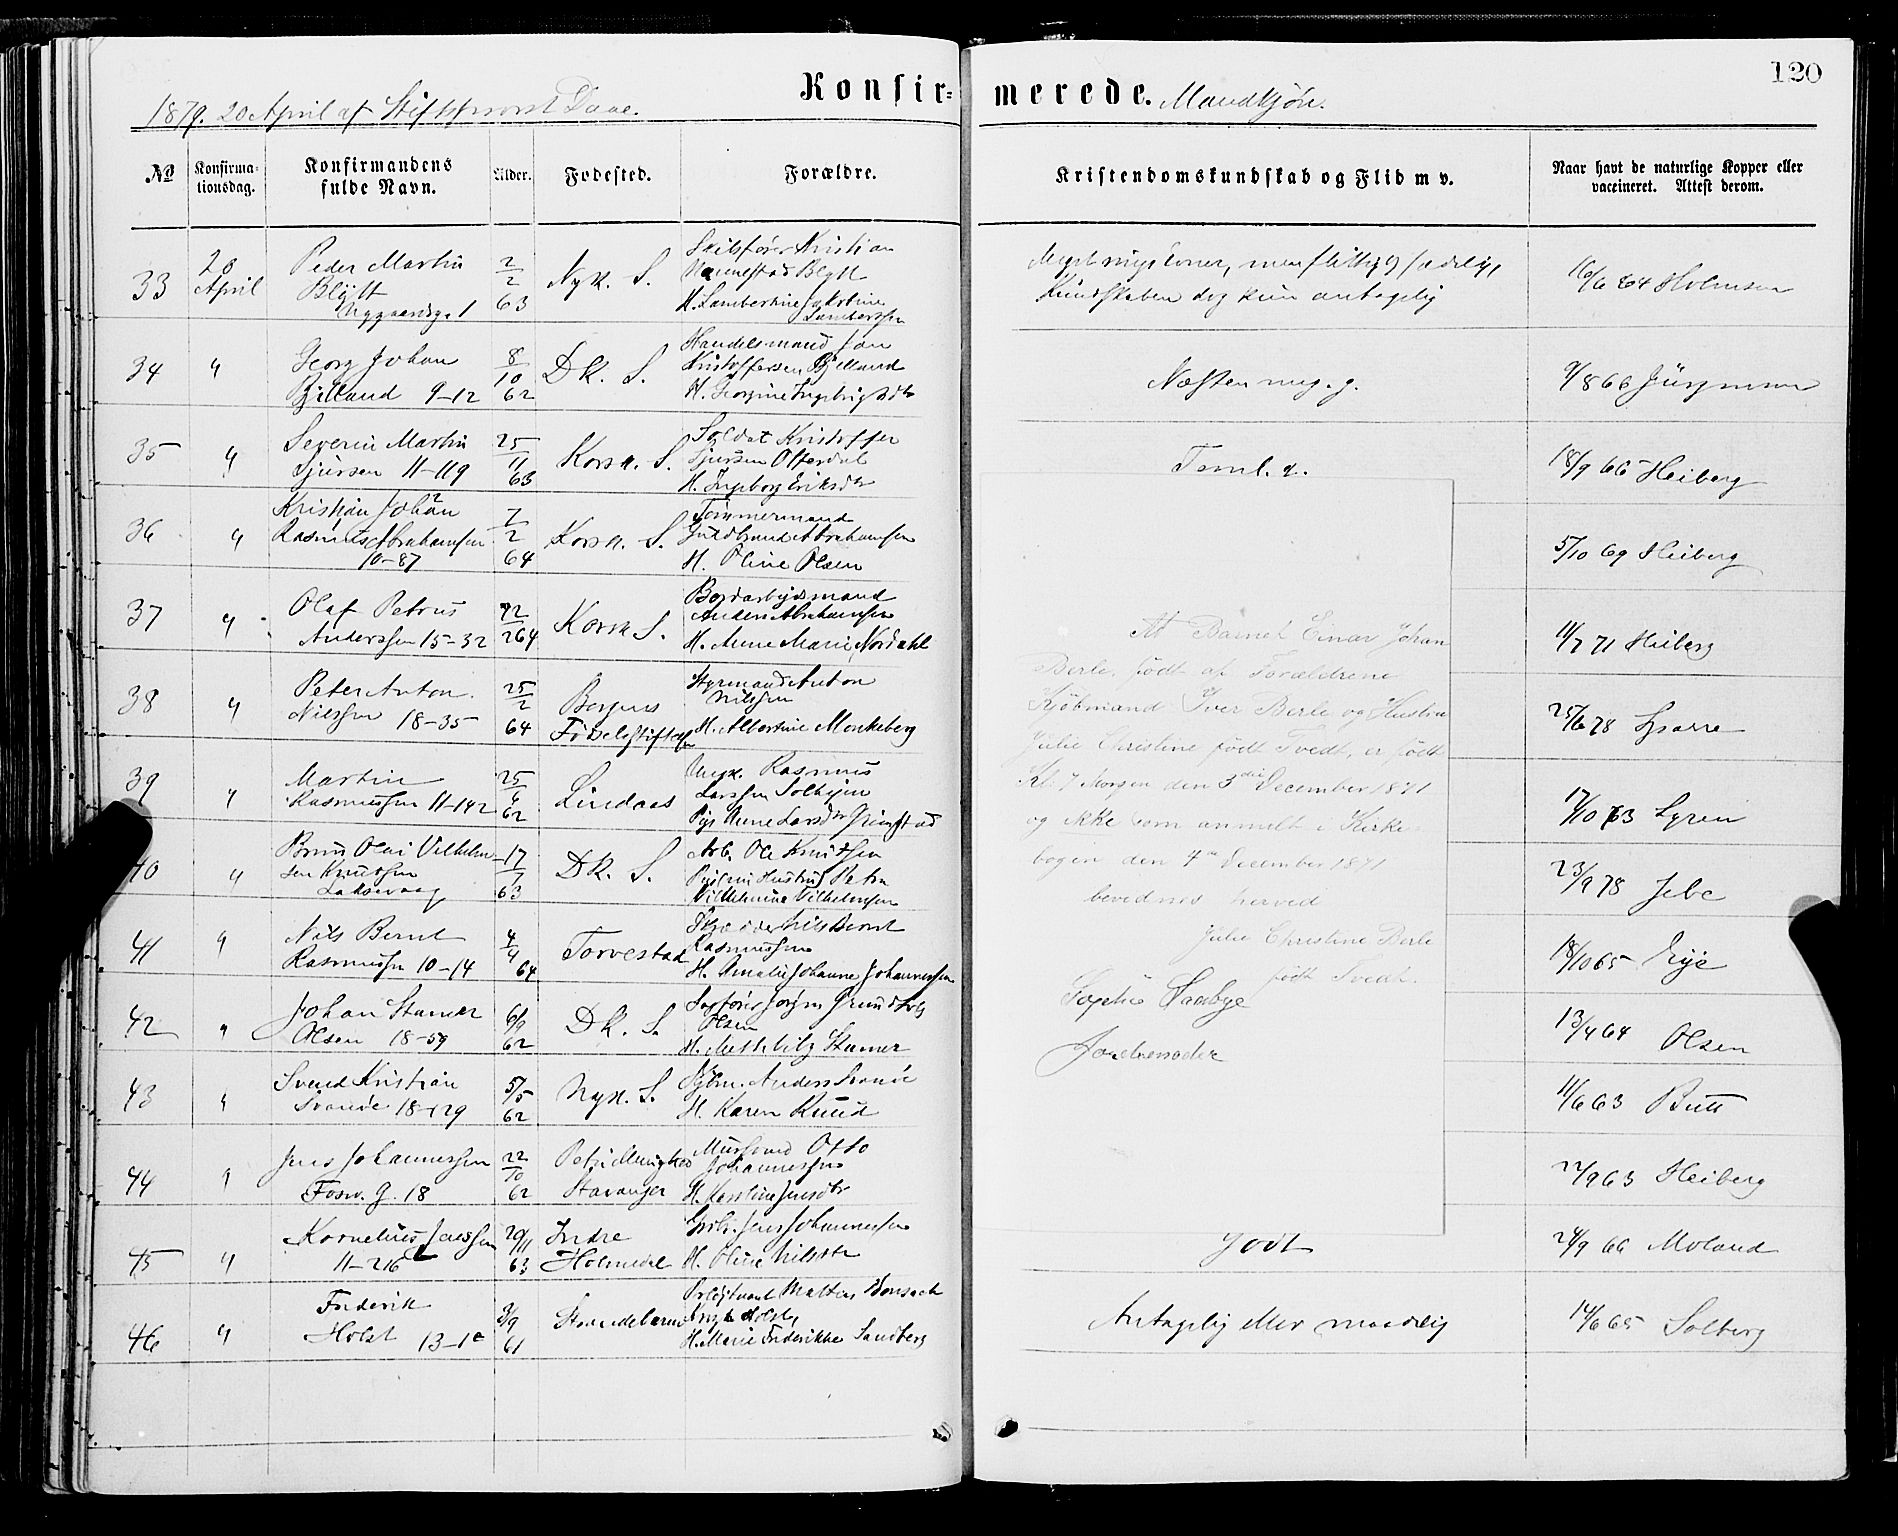 120
Konfir= merede. Mandkjön.
1879. 20 April af Stiftsprovst Daae.
№ Konfirma-
tionsdag.
Konfirmandens
fulde Navn.
Alder.
Fødested.
Forældre.
Kristendomskundskab og Flid m v.
Naar havt de naturlige Kopper eller
vaccineret. Attest derom.
33 20 April
Peder Martin
Blÿtt
Nygaardsg. 1
2/2 63
Nyk. S.
Kristian
Blytt
Kundskaben dog kun antagelig
16/6 64 Holmsen
34 "
Georg Johan
Bjelland 9-12
8/10 62
DK. S.
Handelsmand Jan
Kristoffersen Bjelland
H. Georgine
Næsten meg. g.
9/8 66
35 "
Severin Martin
Sjursen 11-119
25/11 63
Korsk. S.
Soldat Kristoffer
Sjursen Offerdal
H. Ingeborg Eriksdtr
Teml. g.
18/9 65 Heiberg
36 "
Kristian Johan
Rasmus Abrahamsen
10-87
7/2 64
Korsk. S.
Tømmermand
Guldbrand Abrahamsen
H. Oline Olsen
5/10 69 Heiberg
37 "
Olaf Petrus
Anderssen 15-32
22/2 64
Korsk S.
Bordarbejdsmand
Anders Abrahamsen
H. Anne Marie Nordahl
11/7 71 Heiberg
38 "
Peter Anton
Nilssen 18-35
25/2 64
Bergens
Fødselsstiftelse
Styrmand Anton
Nilssen
H. Albertine Monkeberg
25/6 78 Sparre
39 "
Martin
Rasmussen 11-142
25/6 62
Lindaas
Ungk. Rasmus
Larssen Solheim
Pige Anne Larsdtr Grimstad
17/10 63 Lyren
40 "
Olai Vilhelm
sen Knudsen
Laksevaag
17/7 63
DK. S.
Arb. Ole Knudsen
Hustru Petra
Vilhelmine Vilhelmsen
23/9 78 Jebe
41 "
Nils Bernt
Rasmussen 10-14
4/4 64
Torvestad
Nils Bernt
Rasmussen
H. Amalie Johanne Johannessen
18/10 65 Eye
42 "
Johan Stamer
Olsen 18-59
6/9 62
DK. S.
Jørgen
Olsen
Stamer
13/4 64 Olsen
43 "
Svend Kristian
Svanøe 18-129
5/5 62
Nyk. S.
Kjøbm. Anders Svanøe
H. Karen Knud
11/6 63 Butt
44 "
Jens Johannessen
Fosw. g. 18
22/10 62
Petri Menighed
Stavanger
Mursvend Otto
Johannessen
H. Karoline Jensdtr
22/9 63 Heiberg
45 "
Kornelius Jenssen
11-216
29/11 63
Indre
Holmedal
Jens Johannessen
H. Oline Nilsdtr
Godt
24/9 66 Moland
46 "
Frederik
Holst 13-1e
9/9 61
Mattias Bonsach
Holst
H. Marie Frederikke Sandberg
Antagelig eller maadelig
14/6 65 Solberg
At Barnet Einar Johan
Berle, født af Forældrene
Kjøbmand Iver Berle og Hustru
Julie Christine født Tvedt, er født
Kl. 7 Morgen den 3die December 1871
og ikke som anmeldt i Kirke-
bogen den 4de December 1871
bevidnes herved
Julie Christine Berle
født Tvedt.
Sophie Saabye
Jordemoder